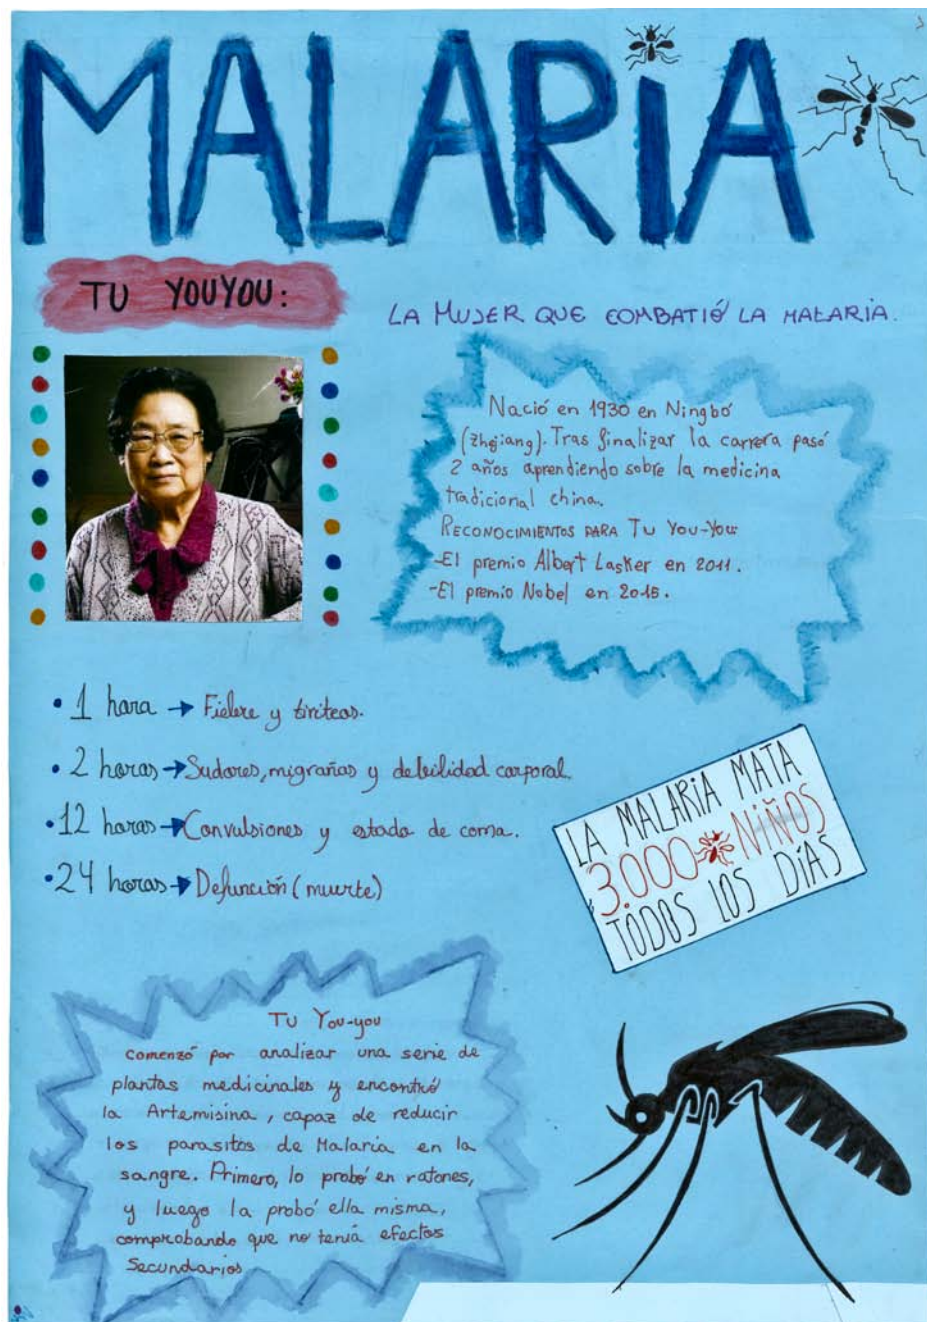 MALARiA
TU YOUYOU:
LA MUJER QUE COMBATIÓ LA MALARiA.
Nació en 1930 en Ningbó
(Zhejiang). Tras finalizar la carrera pasó
2 años aprendiendo sobre la medicina
tradicional china.
RECONOCIMIENTOS PARA TU YOU-YOU:
-El premio Albert Lasker en 2011.
-El premio Nobel en 2015.
• 1 hora → Fiebre y tiriteos.
• 2 horas → Sudores, migrañas y debilidad corporal.
• 12 horas → Convulsiones y estado de coma.
• 24 horas → Defunción (muerte)
LA MALARiA MATA
3.000 NiÑOS
TODOS LOS DÍAS
TU You-you
comenzó por analizar una serie de
plantas medicinales y encontró
la Artemisina, capaz de reducir
los parasitos de Malaria en la
sangre. Primero, lo probó en ratones,
y luego la probó ella misma,
comprobando que no tenía efectos
Secundarios